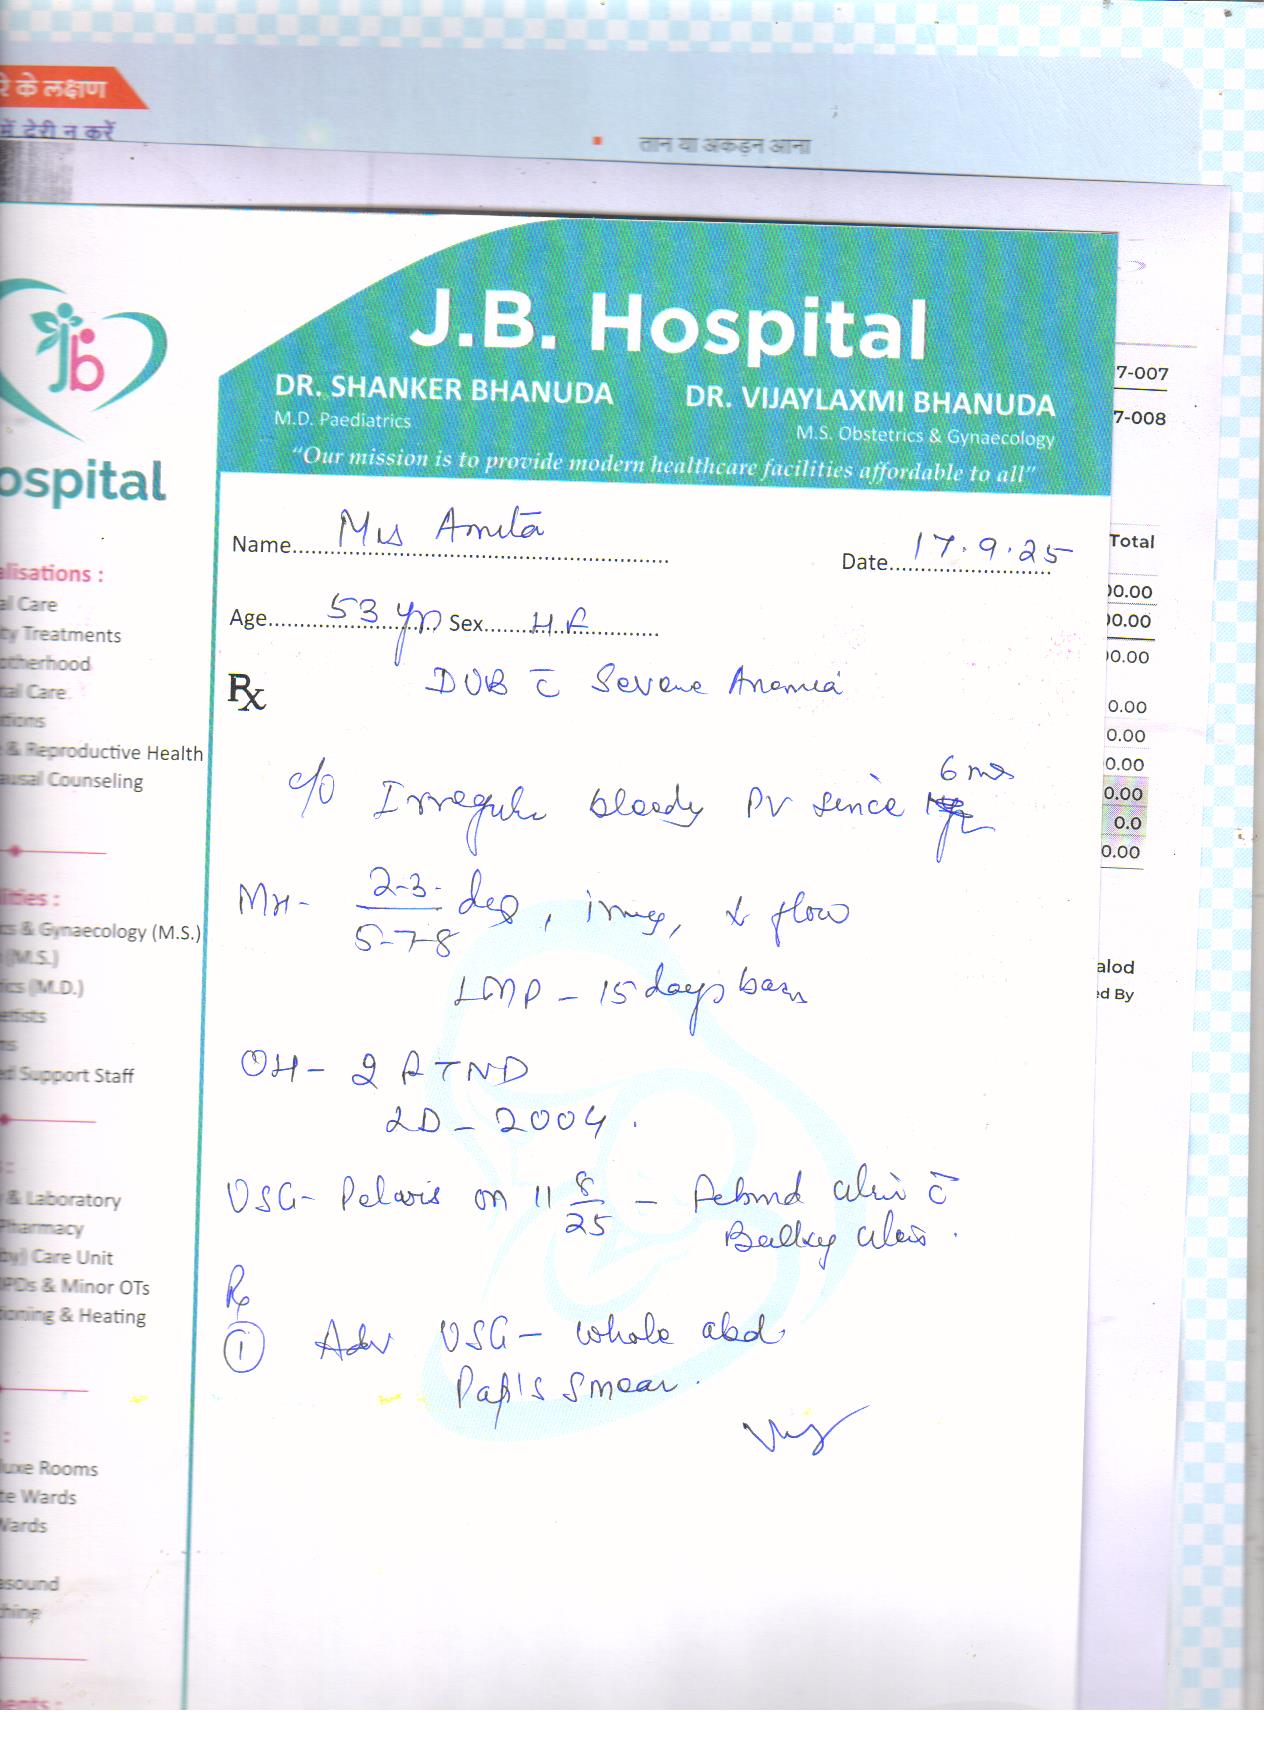 रे के लक्षण
में देरी न करें
तान या अकड़न आना
J.B. Hospital
DR. SHANKER BHANUDA
M.D. Paediatrics
DR. VIJAYLAXMI BHANUDA
M.S. Obstetrics & Gynaecology
"Our mission is to provide modern healthcare facilities affordable to all"
7-007
7-008
jb
ospital
Name Mrs Amita
Date 17.9.25
Age 53 yr Sex H.F
Rx
DUB c̄ Severe Anemia
c/o Irregular bleedy PV since 6 ms
MH- 2-3-/5-7-8 days, irreg, flow
LMP - 15 days back
OH- 2 FTND
LD - 2004.
USG- Pelvis on 11 8/25 - uterus c̄
Bulky uterus.
Rx
1 Adv USG- whole abd
Pap's Smear.
Total
00.00
00.00
00.00
0.00
0.00
0.00
0.00
0.0
0.00
alod
ed By
alisations :
al Care
ty Treatments
otherhood
tal Care
tions
& Reproductive Health
ausal Counseling
lities :
cs & Gynaecology (M.S.)
(M.S.)
ics (M.D.)
etists
ns
ed Support Staff
s :
& Laboratory
Pharmacy
by) Care Unit
OPDs & Minor OTs
tioning & Heating
:
luxe Rooms
te Wards
Wards
asound
thing
ents :